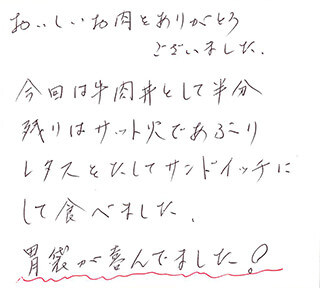 おいしいお肉をありがとう
ございました.
今回は牛肉丼として半分
残りはサット火であぶり
レタスをたしてサンドイッチに
して食べました.
胃袋が喜んでました!